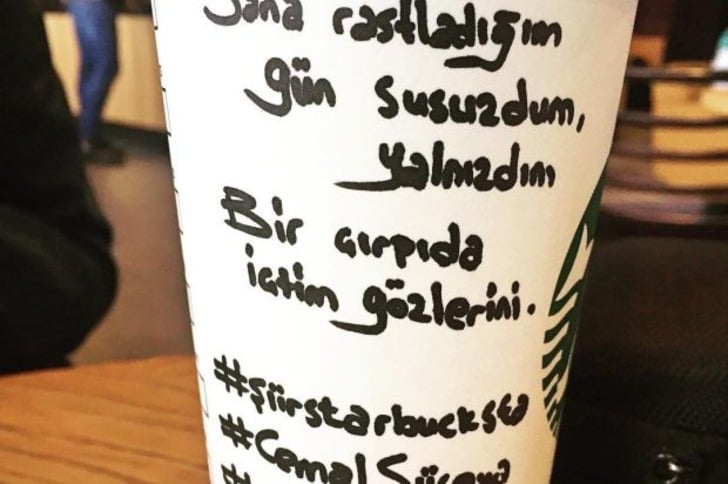 Sana rastladığım
gün susuzdum,
yalnızdım
Bir çırpıda
içtim gözlerini.
#şiirstarbucksta
#Cemal Süreya
#